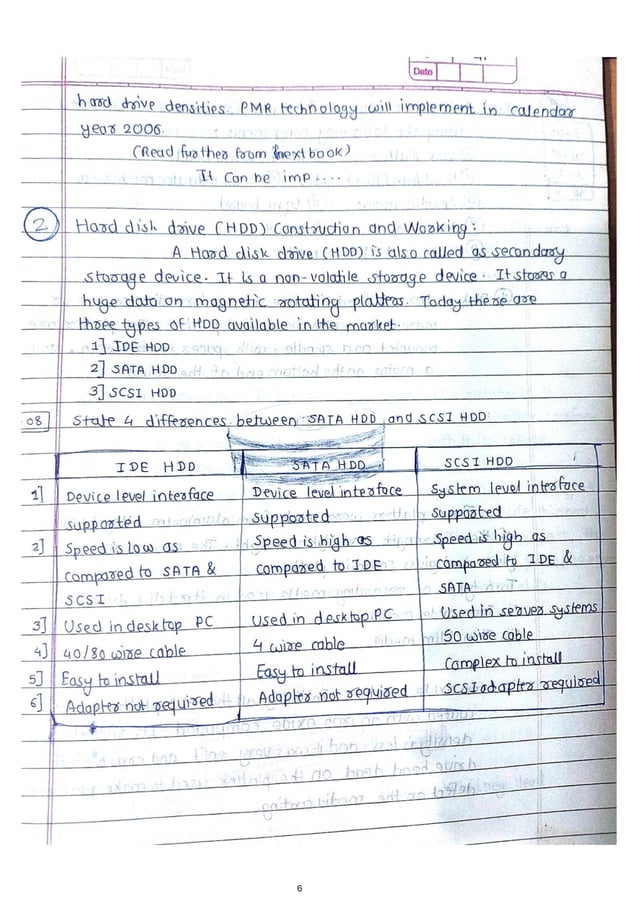 Date
hard drive densities. PMR technology will implement in calendar
year 2006.
(Read further from textbook)
It Can be imp .....
2 Hard disk drive (HDD) Construction and Working :
A Hard disk drive (HDD) is also called as secondary
storage device. It is a non-volatile storage device. It stores a
huge data on magnetic rotating platters. Today there are
three types of HDD available in the market.
1] IDE HDD
2] SATA HDD
3] SCSI HDD
08 State 4 differences between SATA HDD and SCSI HDD
IDE HDD SATA HDD SCSI HDD
1] Device level interface Device level interface System level interface
supported supported supported
2] Speed is low as Speed is high as Speed is high as
compared to SATA & compared to IDE compared to IDE &
SCSI SATA
3] Used in desktop PC Used in desktop PC Used in server systems
4] 40/80 wire cable 4 wire cable 50 wire cable
5] Easy to install Easy to install Complex to install
6] Adapter not required Adapter not required SCSI adapter required
6